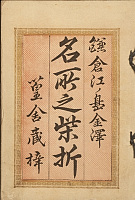 鎌倉江ノ島金澤
名所之栞折
菫舎蔵梓